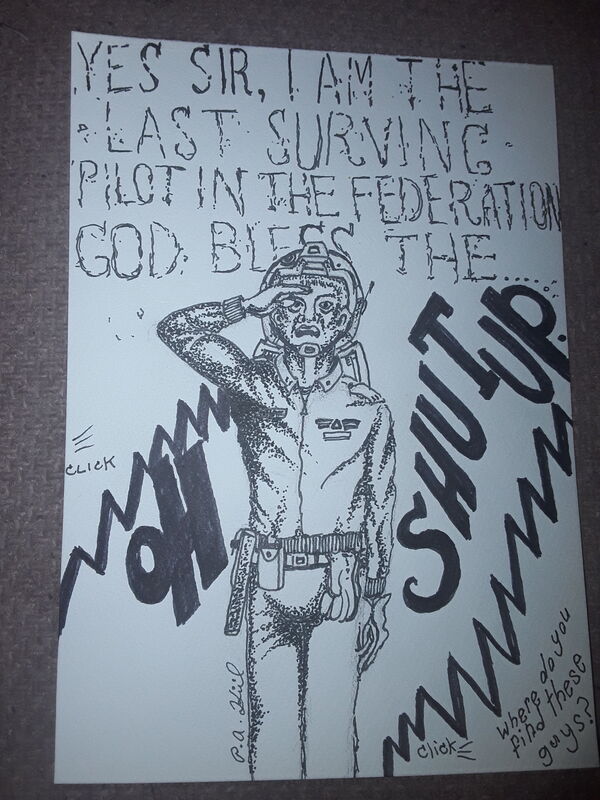 YES SIR, I AM THE
LAST SURVING
PILOT IN THE FEDERATION
GOD. BLESS THE......
CLICK
OH
SHUT UP.
CLICK
where do you
find these
guys?